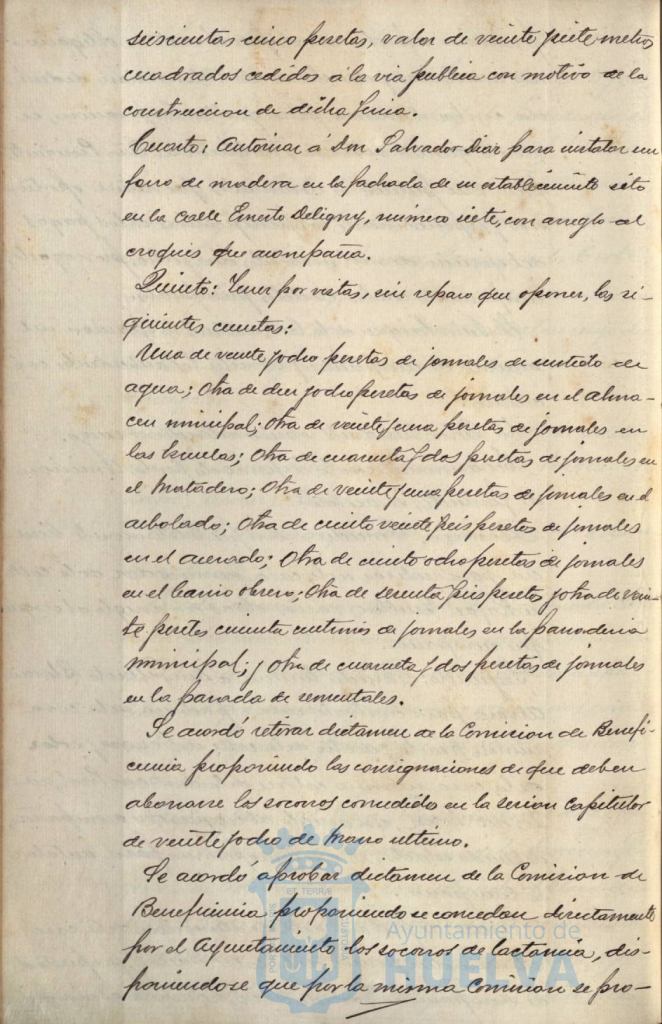 seiscientas cinco pesetas, valor de veinte y siete metros
cuadrados cedidos á la via publica con motivo de la
construccion de dicha finca.
Cuarto: Autorizar á Don Salvador Diaz para instalar un
forro de madera en la fachada de su establecimiento sito
en la calle Ernesto Deligny, número siete, con arreglo al
croquis que acompaña.
Quinto: Tener por vistas, sin reparo que oponer, las si-
guientes cuentas:
Una de veinte y ocho pesetas de jornales de surtido de
agua; Otra de diez y ocho pesetas de jornales en el alma-
cen municipal; Otra de veinte y una pesetas de jornales en
las Escuelas; Otra de cuarenta y dos pesetas de jornales en
el Matadero; Otra de veinte y una pesetas de jornales en el
arbolado; Otra de ciento veinte y seis pesetas de jornales
en el acerado; Otra de ciento ocho pesetas de jornales
en el barrio obrero; Otra de sesenta y seis pesetas y otra de vein-
te pesetas cincuenta centimos de jornales en la panaderia
municipal; y otra de cuarenta y dos pesetas de jornales
en la parada de sementales.
Se acordó retirar dictamen de la Comision de Benefi-
cencia proponiendo las consignaciones de que deben
abonarse los socorros concedidos en la sesion capitular
de veinte y ocho de Marzo ultimo.
Se acordó aprobar dictamen de la Comision de
Beneficencia proponiendo se concedan directamente
por el Ayuntamiento los socorros de lactancia, dis-
poniendose que por la misma Comision se pro-
Ayuntamiento de
HUELVA